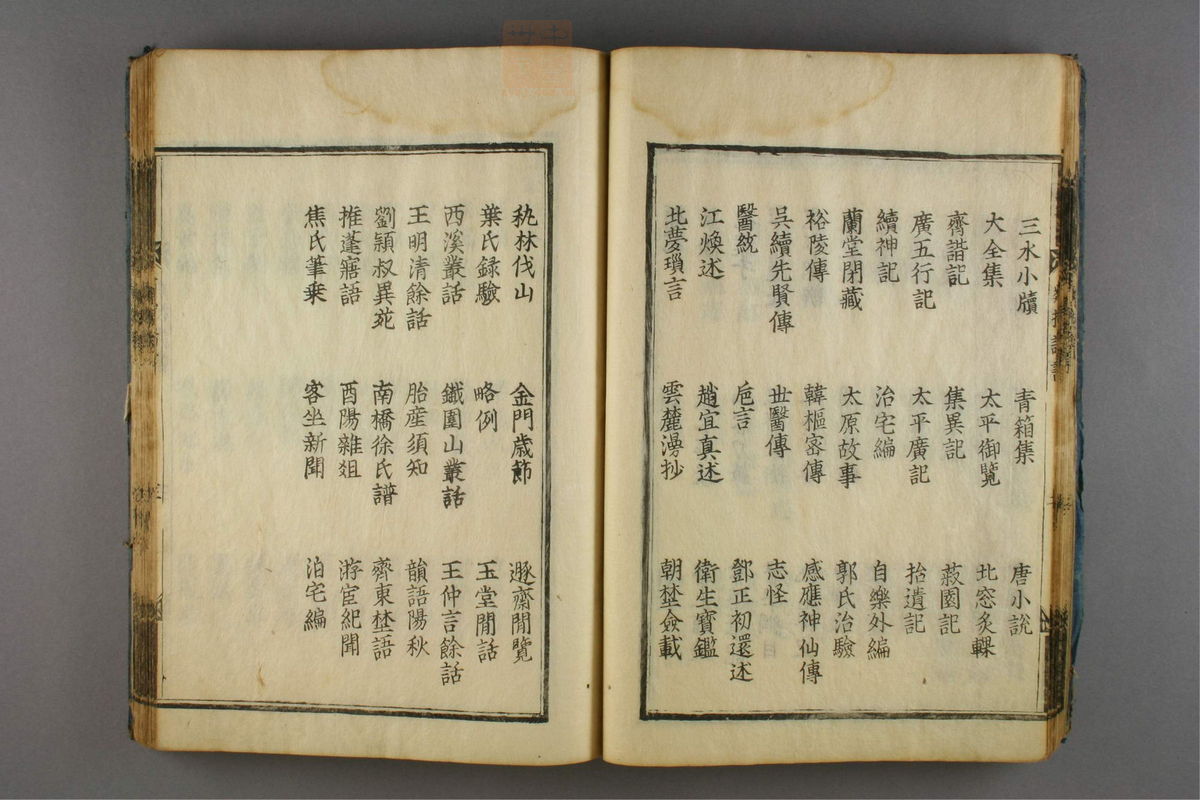 三水小牘 青箱集 唐小說
大全集 太平御覽 北窓炙輠
齊諧記 集異記 菽園記
廣五行記 太平廣記 拾遺記
續神記 治宅編 自樂外編
蘭堂閒藏 太原故事 郭氏治驗
裕陵傳 韓樞密傳 感應神仙傳
呉續先賢傳 世醫傳 志怪
醫統 巵言 鄧正初還述
江煥述 趙宜真述 衛生寶鑑
北夢瑣言 雲麓漫抄 朝埜僉載
秇林伐山 金門歲節 遯齋閒覽
葉氏録驗 略例 玉堂閒話
西溪叢話 鐵圍山叢話 王仲言餘話
王明清餘話 胎産須知 韻語陽秋
劉穎叔異苑 南橋徐氏譜 齊東埜語
推蓬寤語 酉陽雜俎 游宦紀聞
焦氏筆乗 客坐新聞 泊宅編